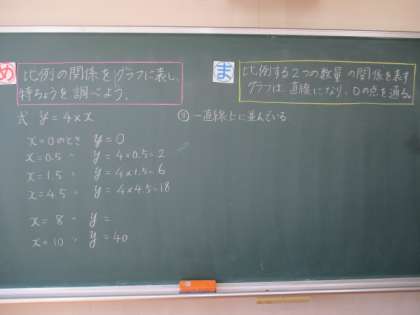 め
比例の関係をグラフに表し、
特ちょうを調べよう。
式 y=4×x
x=0のとき y=0
x=0.5 〃 y=4×0.5=2
x=1.5 〃 y=4×1.5=6
x=4.5 〃 y=4×4.5=18
x=8 〃 y=
x=10 〃 y=40
ま
比例する2つの数量の関係を表す
グラフは、直線になり、0の点を通る。
一直線上に並んでいる